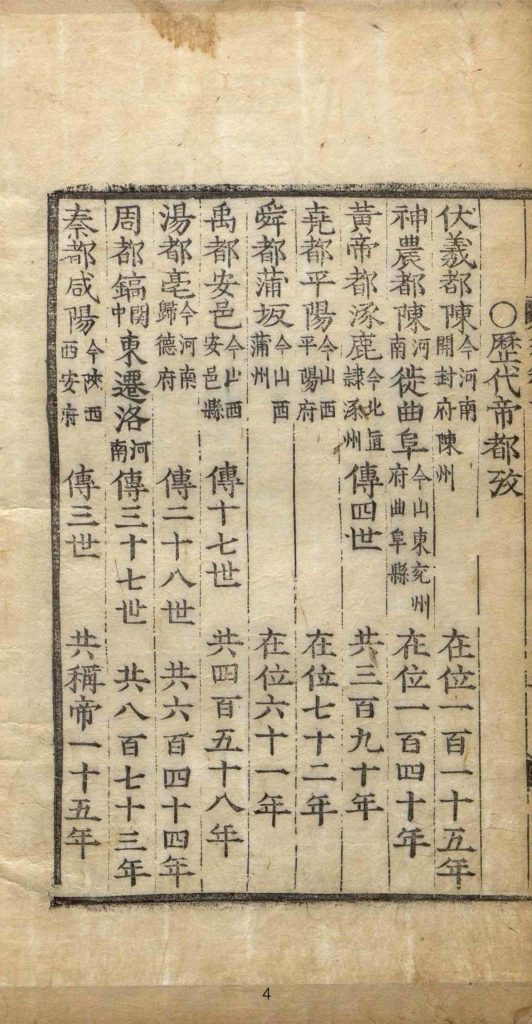 ○歷代帝都攷
伏羲都陳今河南開封府陳州在位一百一十五年
神農都陳河南徙曲阜今山東兗州府曲阜縣在位一百四十年
黃帝都涿鹿今北直隸涿州傳四世共三百九十年
堯都平陽今山西平陽府在位七十二年
舜都蒲坂今山西蒲州在位六十一年
禹都安邑今山西安邑縣傳十七世共四百五十八年
湯都亳今河南歸德府傳二十八世共六百四十四年
周都鎬關中東遷洛河南傳三十七世共八百七十三年
秦都咸陽今陝西西安府傳三世共稱帝一十五年
4